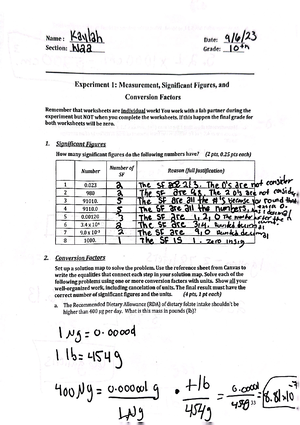 Name : Kaylah Date: 9/6/23
Section: Naa Grade: 10th
Experiment 1: Measurement, Significant Figures, and
Conversion Factors
Remember that worksheets are individual work! You work with a lab partner during the
experiment but NOT when you complete the worksheets. If this happen the final grade for
both worksheets will be zero.
1. Significant Figures
How many significant figures do the following numbers have? (2 pts, 0.25 pts each)
Number Number of SF Reason (full justification)
1 0.023 2 The SF are 2 & 3. The 0's are not consider
2 980 2 The SF are 9,8. The 0's are not consider
3 91010. 5 The SF are all the #'s because you round tha
4 9110.0 5 The SF are all the numbers,
5 0.00120 3 The SF are 1, 2, 0 The number after the
6 3.4 x 10 2 The SF are 3,4.
7 9.0 x 10 2 The SF are 9,0
8 1000. 1 The SF is 1. zero insig
2. Conversion Factors
Set up a solution map to solve the problem. Use the reference sheet from Canvas to
write the equalities that connect each step in your solution map. Solve each of the
following problems using one or more conversion factors with units. Show all your
well-organized work, including cancelation of units. The final result must have the
correct number of significant figures and the units. (4 pts, 1 pt each)
a. The Recommended Dietary Allowance (RDA) of dietary folate intake shouldn't be
higher than 400 μg per day. What is this mass in pounds (lb)?
1 Ng = 0.00000
1 lb = 454g
400 Ng = 0.000001 g • 1 lb =
1 Ng 454g